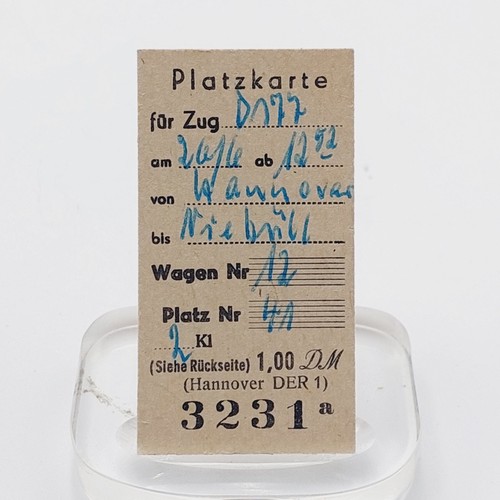 Platzkarte
für Zug D177
am 20/6 ab 12 52
von Hannover
bis Niebüll
Wagen Nr 12
Platz Nr 41
2 Kl
(Siehe Rückseite) 1,00 DM
(Hannover DER 1)
3231a